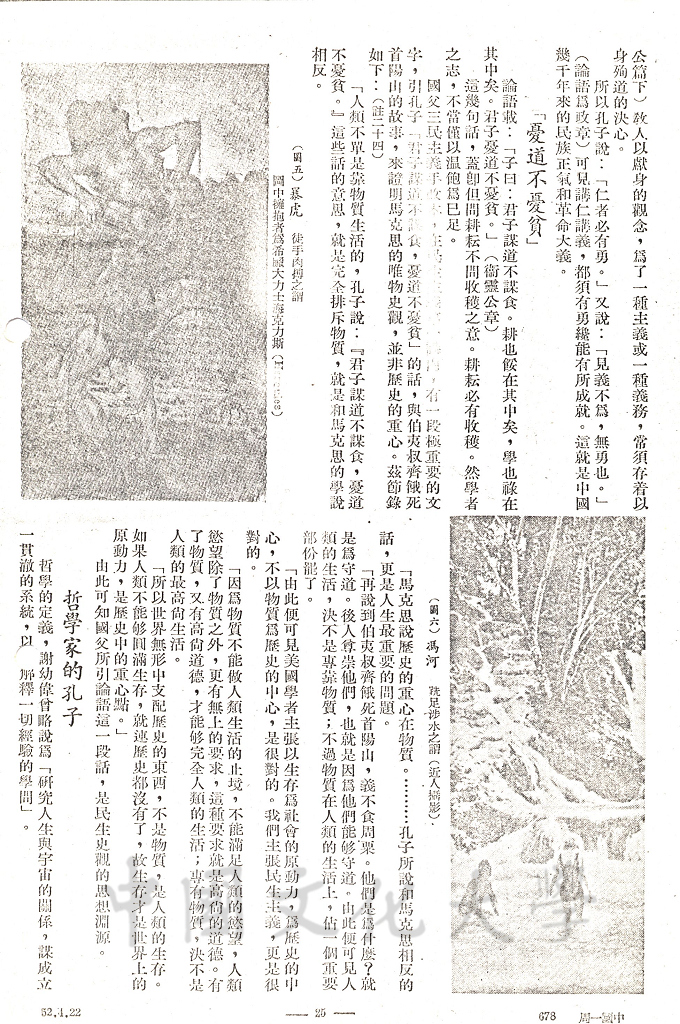 公篇下)敎人以獻身的觀念,爲了一種主義或一種義務,常須存着以
身殉道的決心。
所以孔子說:「仁者必有勇。」又說:「見義不爲,無勇也。」
(論語爲政章)可見講仁講義,都須有勇纔能有所成就。這就是中國
幾千年來的民族正氣和革命大義。
「憂道不憂貧」
論語載:「子曰:君子謀道不謀食。耕也餒在其中矣,學也祿在
其中矣。君子憂道不憂貧。」(衞靈公章)
這幾句話,蓋卽但問耕耘不問收穫之意。耕耘必有收穫。然學者
之志,不當僅以温飽爲已足。
國父三民主義手改本,有一段極重要的文
字,引孔子「君子謀道不謀食,憂道不憂貧」的話,與伯夷叔齊餓死
首陽山的故事,來證明馬克思的唯物史觀,並非歷史的重心。茲節錄
如下:(註二十四)
「人類不單是靠物質生活的,孔子說:『君子謀道不謀食,憂道
不憂貧。』這些話的意思,就是完全排斥物質,就是和馬克思的學說
相反。
(圖五)暴虎 徒手肉搏之謂
圖中擁抱者爲希臘大力士海克力斯
(圖六)馮河 跣足涉水之謂(近人攝影)
「馬克思說歷史的重心在物質。………孔子所說和馬克思相反的
話,更是人生最重要的問題。
「再說到伯夷叔齊餓死首陽山,義不食周粟。他們是爲什麼?就
是爲守道。後人尊崇他們,也就是因爲他們能够守道。由此便可見人
類的生活,決不是專靠物質;不過物質在人類的生活上,佔一個重要
部份罷了。
「由此便可見美國學者主張以生存爲社會的原動力,爲歷史的中
心,不以物質爲歷史的中心,是很對的。我們主張民生主義,更是很
對的。
「因爲物質不能做人類生活的止境,不能滿足人類的慾望,人類
慾望除了物質之外,更有無上的要求,這種要求就是高尙的道德。有
了物質,又有高尙道德,才能够完全人類的生活;專有物質,決不是
人類的最高尙生活。
「所以世界無形中支配歷史的東西,不是物質,是人類的生存。
如果人類不能够圓滿生存,就連歷史都沒有了,故生存才是世界上的
原動力,是歷史中的重心點。」
由此可知國父所引論語這一段話,是民生史觀的思想淵源。
哲學家的孔子
哲學的定義,謝幼偉曾略說爲「研究人生與宇宙的關係,謀成立
一貫澈的系統,以 解釋一切經驗的學問」。
52.4.22
— 25 —
678
中國一周
中國文化大學